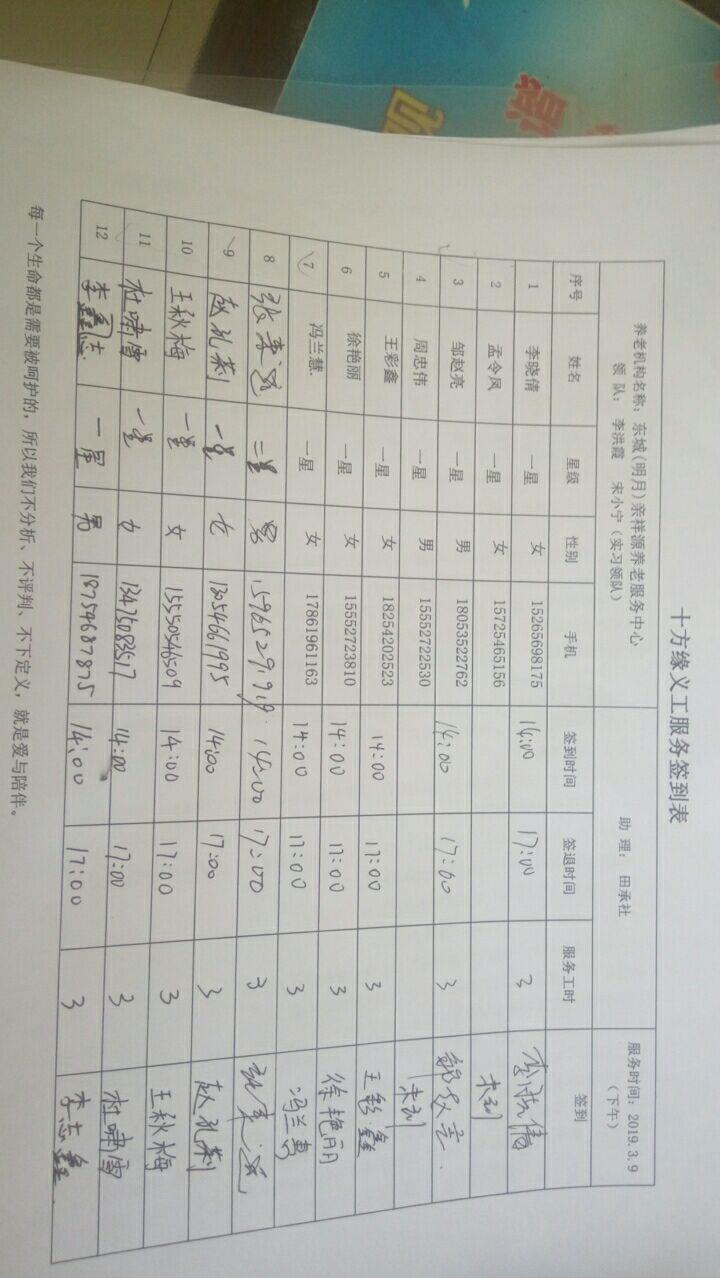 观 谐
十方缘义工服务签到表
养老机构名称：东城（明月）亲祥源养老服务中心 助 理： 田承社 服务时间：2019.3.9
领 队： 李洪霞 宋小宁（实习领队） （下午）
序号 姓名 星级 性别 手机 签到时间 签退时间 服务工时 签到
1 李晓倩 一星 女 15265698175 14:00 17:00 3 李晓倩
2 孟令凤 一星 女 15725465156 未到
3 邹赵亮 一星 男 18053522762 14:00 17:00 3
4 周忠伟 一星 男 15552722530 未到
5 王彩鑫 一星 女 18254202523 14:00 17:00 3 王彩鑫
6 徐艳丽 一星 女 15552723810 14:00 17:00 3 徐艳丽
7 冯兰慧 一星 女 17861961163 14:00 17:00 3 冯兰慧
8 张来远 二星 男 14:00 17:00 3 张来远
9 赵孔莉 一星 女 13054661995 14:00 17:00 3 赵孔莉
10 王秋梅 一星 女 15550546509 14:00 17:00 3 王秋梅
11 杜啸雪 一星 女 13475083517 14:00 17:00 3 杜啸雪
12 李鑫志 一星 男 18754687875 14:00 17:00 3 李志鑫
每一个生命都是需要被呵护的，所以我们不分析、不评判、不下定义，就是爱与陪伴。